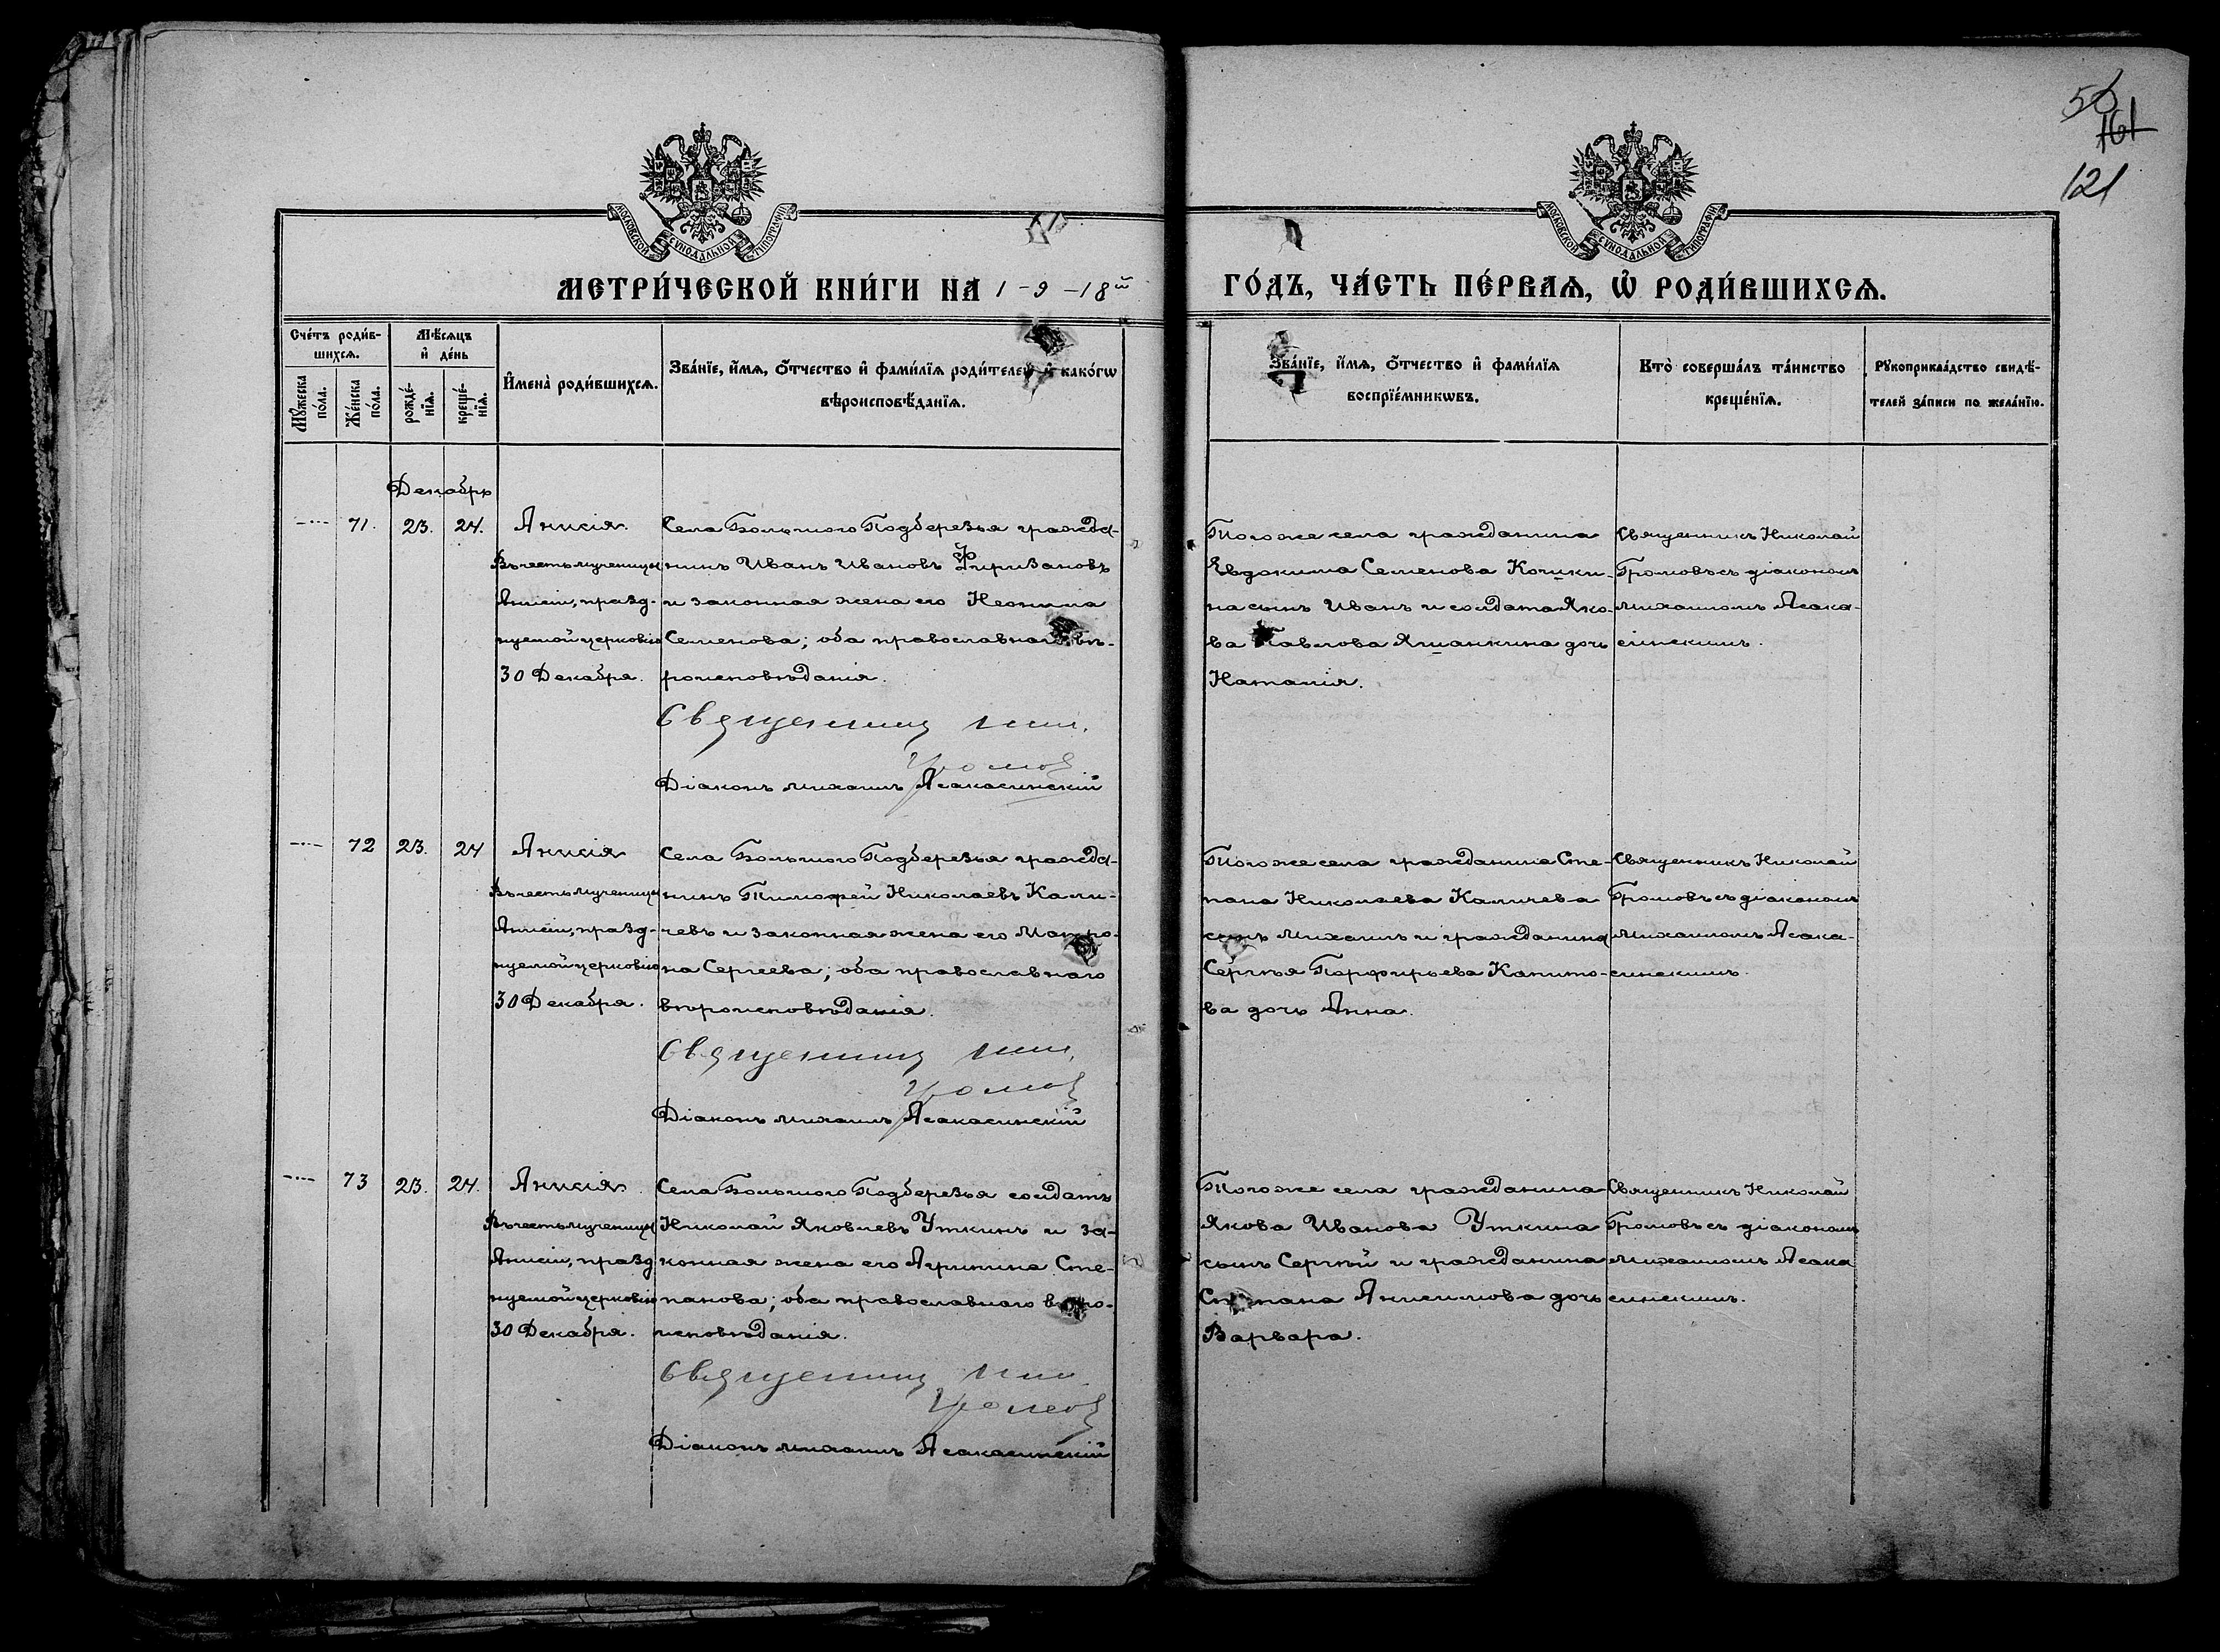 50
161
121
МОСКОВСКОЙ СѴНОДАЛЬНОЙ ТИПОГРАФІИ
МОСКОВСКОЙ СѴНОДАЛЬНОЙ ТИПОГРАФІИ
МЕТРИ́ЧЕСКОЙ КНИ́ГИ НА 1-9-18й
ГО́ДЪ, ЧА́СТЬ ПЕ́РВАѦ, Ѡ РОДИ́ВШИХСѦ.
Сче́тъ роди́в-
шихсѧ.
Мꙋ́жеска
по́ла.
Же́нска
по́ла.
Мѣ́сѧцъ
и҆ де́нь
рожде́-
нїѧ.
креще́-
нїѧ.
И҆мена̀ роди́вшихсѧ.
Зва́нїе, и҆́мѧ, ѻ҆́тчество и҆ фами́лїѧ роди́телей и҆ како́гѡ
вѣроисповѣ́данїѧ.
Зва́нїе, и҆́мѧ, ѻ҆́тчество и҆ фами́лїѧ
воспрїе́мникѡвъ.
Кто̀ соверша́лъ та́инство
креще́нїѧ.
Рꙋкоприкла́дство свидѣ́-
телей за́писи по жела́нїю.
Декабрь
71. 23. 24.
Анисія.
Въ честь мученицы
Анисіи, празд-
нуемой церковію
30 Декабря.
Села Большого Подберезья гражда-
нинъ Иванъ Ивановъ Фиризановъ
и законная жена его Неонила
Семенова; оба православнаго вѣ-
роисповѣданія.
Священникъ Ник.
Громов
Діаконъ Михаилъ Асакасинскій
Того же села гражданина
Евдокима Семенова Кошки-
на сынъ Иванъ и солдата Яко-
ва Павлова Яшанкина дочь
Наталія.
Священникъ Николай
Громовъ съ діакономъ
Михаиломъ Асака-
синскимъ.
72 23. 24
Анисія
Въ честь мученицы
Анисіи, празд-
нуемой церковію
30 Декабря.
Села Большого Подберезья гражда-
нинъ Тимофей Николаевъ Кали-
чевъ и законная жена его Матро-
на Сергеева; оба православнаго
вѣроисповѣданія.
Священникъ Ник.
Громов
Діаконъ Михаилъ Асакасинскій
Того же села гражданина Сте-
пана Николаева Каличева
сынъ Михаилъ и гражданина
Сергѣя Порфирьева Капито-
ва дочь Анна.
Священникъ Николай
Громовъ съ діакономъ
Михаиломъ Асака-
синскимъ.
73 23. 24.
Анисія.
Въ честь мученицы
Анисіи, празд
нуемой церковію
30 Декабря.
Села Большого Подберезья солдатъ
Николай Яковлевъ Уткинъ и за-
конная жена его Агрипина Сте-
панова; оба православнаго вѣро-
исповѣданія.
Священникъ Ник.
Громов
Діаконъ Михаилъ Асакасинскій
Того же села гражданина
Якова Иванова Уткина
сынъ Сергѣй и гражданина
Степана Анисимова дочь
Варвара.
Священникъ Николай
Громовъ съ діакономъ
Михаиломъ Асака
синскимъ.